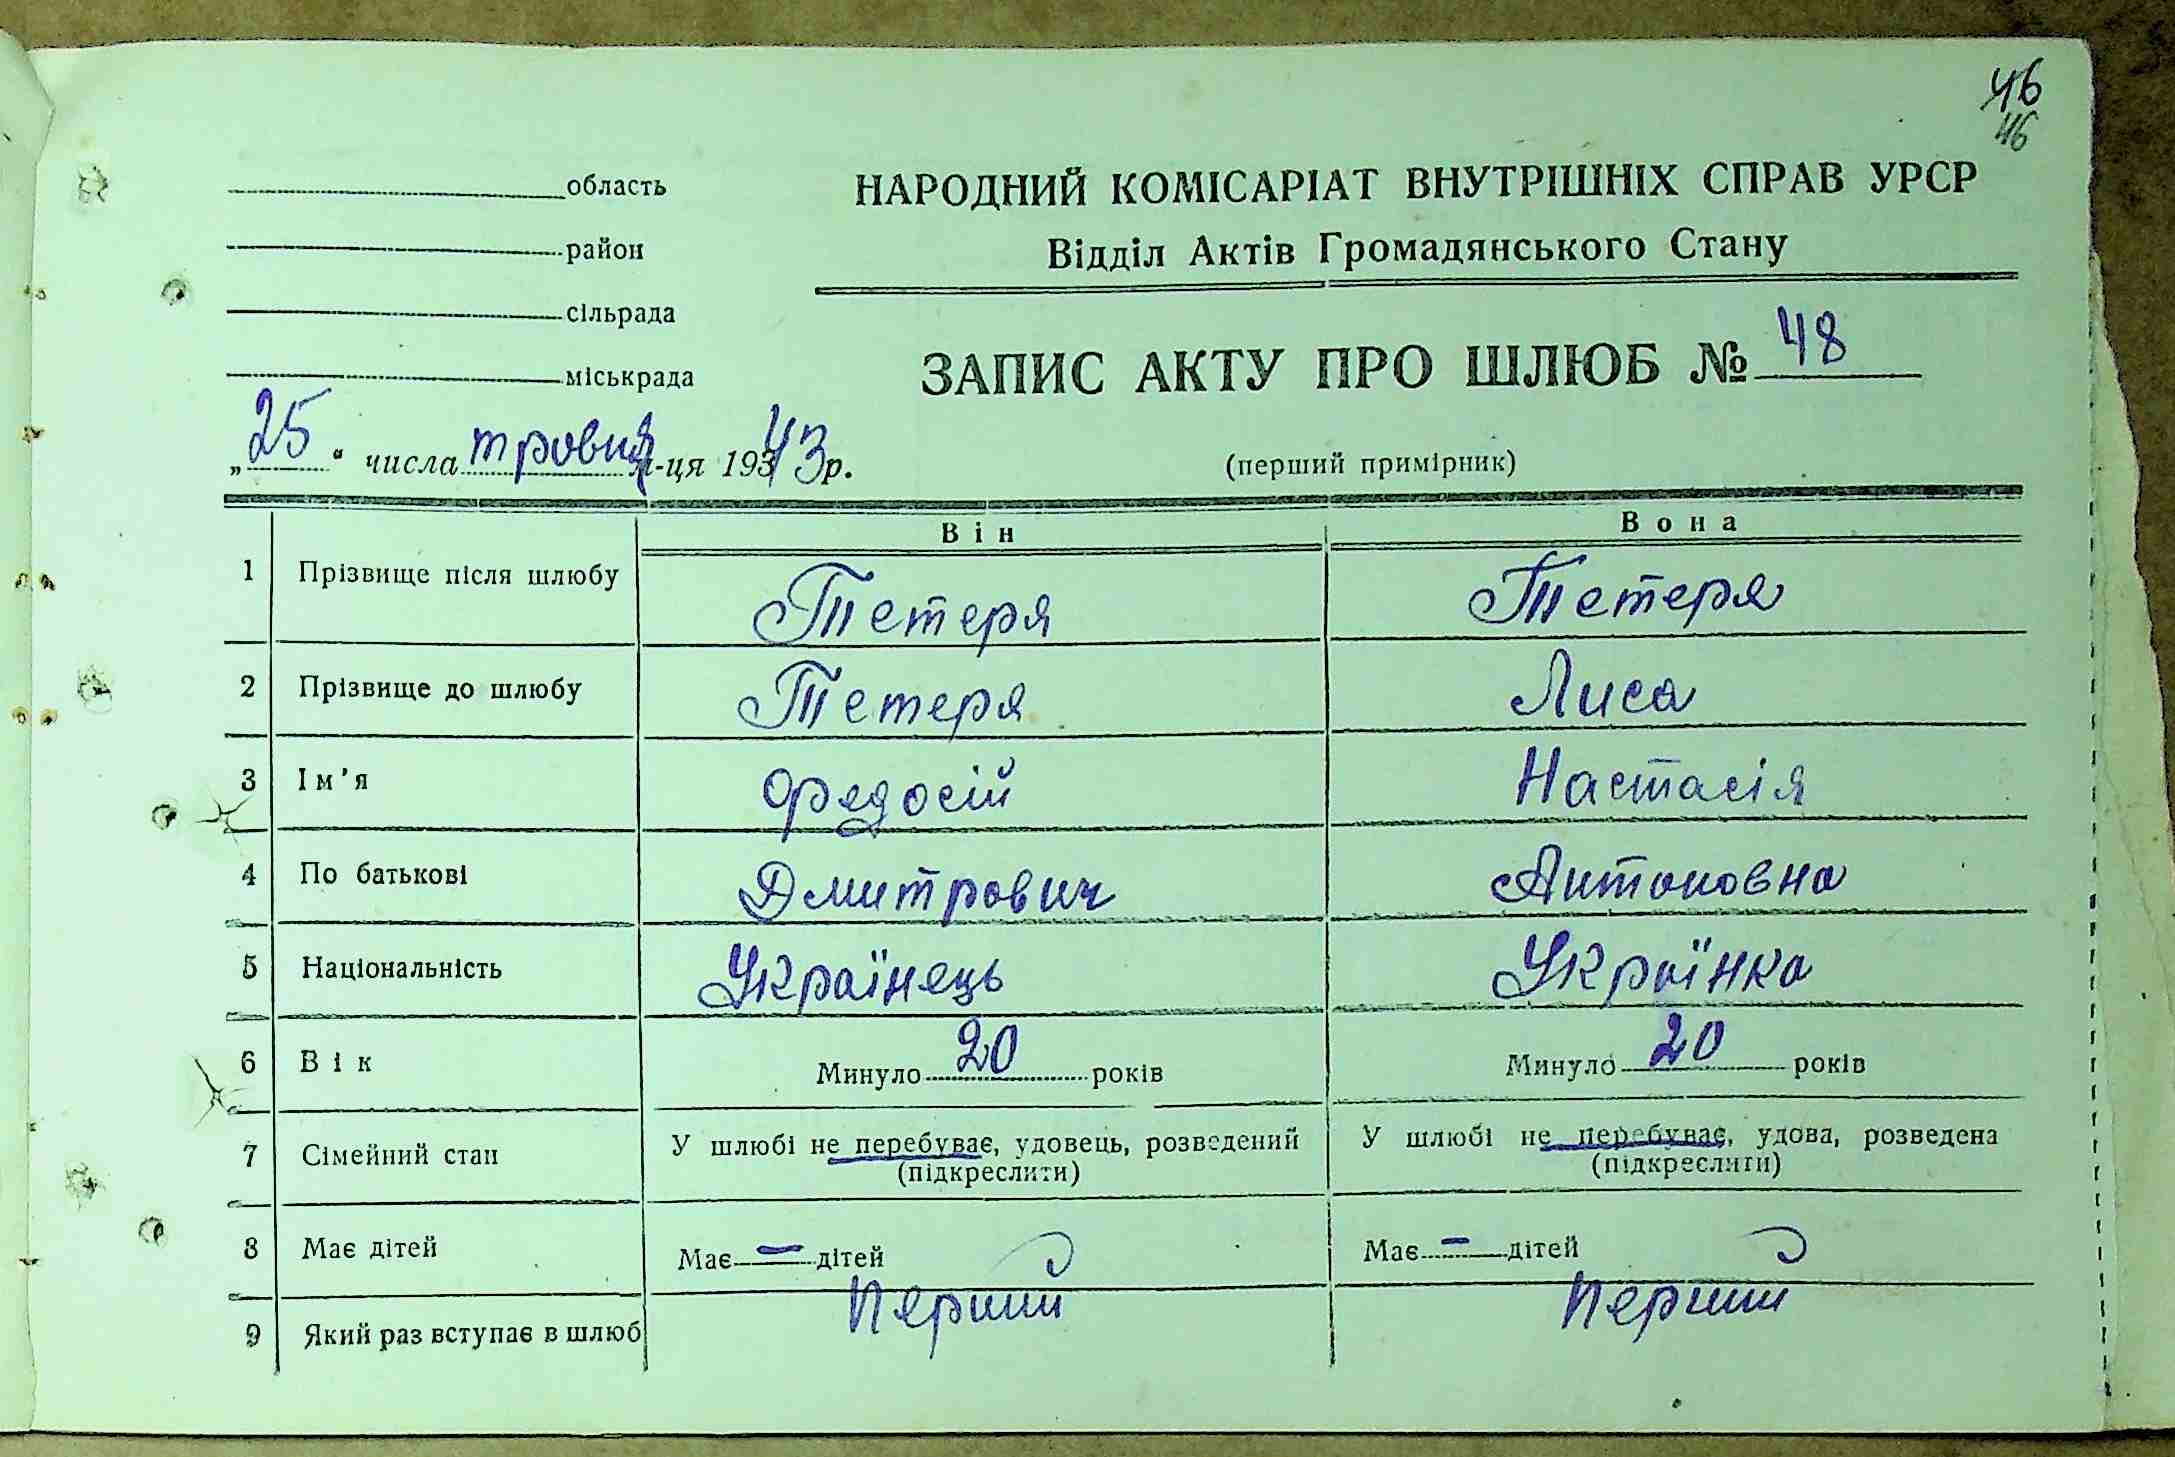 46
46
область
район
сільрада
міськрада
НАРОДНИЙ КОМІСАРІАТ ВНУТРІШНІХ СПРАВ УРСР
Відділ Актів Громадянського Стану
ЗАПИС АКТУ ПРО ШЛЮБ № 48
„25“ числа тровня м-ця 1943 р.
(перший примірник)
Він Вона
1 Прізвище після шлюбу Тетеря Тетеря
2 Прізвище до шлюбу Тетеря Лиса
3 Ім'я Федосій Настасія
4 По батькові Дмитрович Антоновна
5 Національність Українець Українка
6 Вік Минуло 20 років Минуло 20 років
7 Сімейний стан У шлюбі не перебуває, удовець, розведений У шлюбі не перебуває, удова, розведена
(підкреслити) (підкреслити)
8 Має дітей Має — дітей Має — дітей
9 Який раз вступає в шлюб Перший Перший